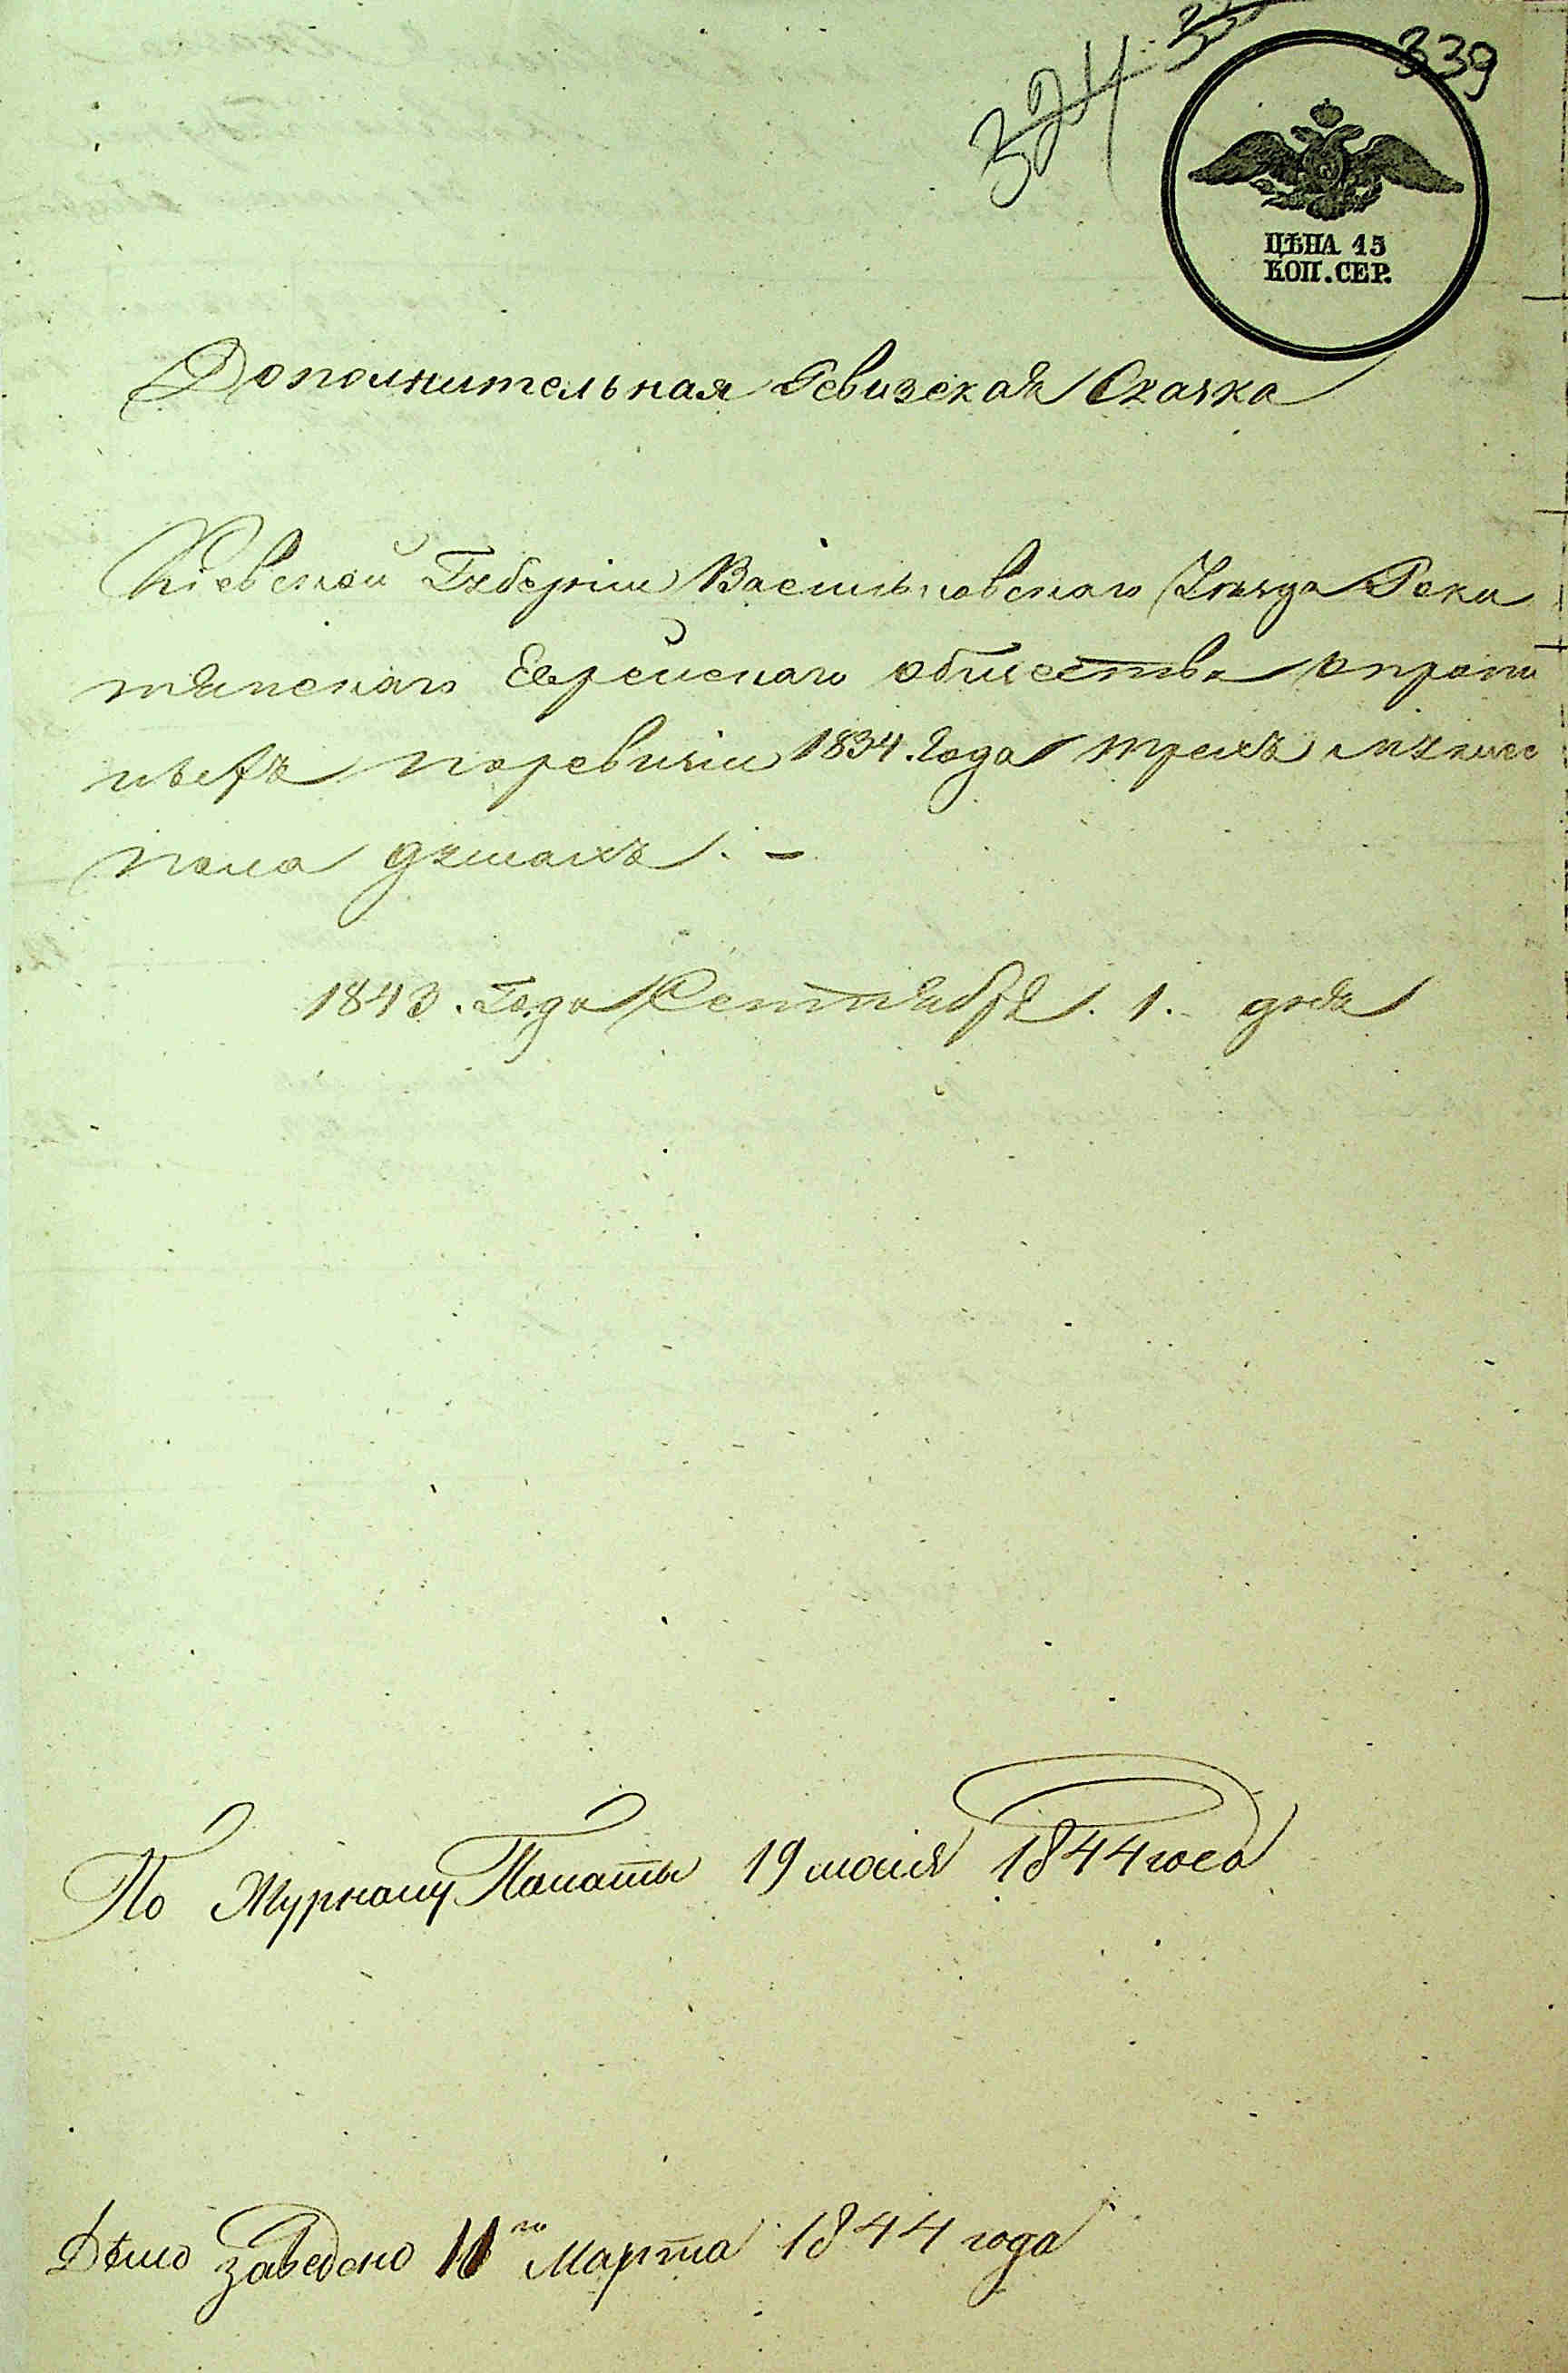 339
324
ЦѢНА 15
КОП. СЕР.
Дополнительная Ревизская Сказка
Кіевской Губерніи Васильковскаго Уѣзда Роки
тянскаго Еврейскаго общества о
по ревизіи 1834. Года трехъ мужес
пола душахъ. -
1843. Года Сентября. 1. дня
По Журналу Палаты 19 маія 1844 года
Дѣло заведено го Марта 1844 года